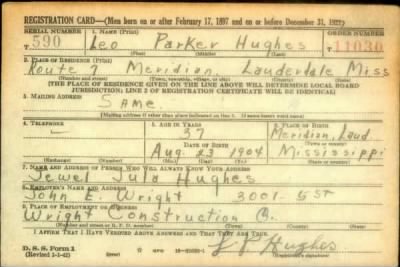 REGISTRATION CARD—(Men born on or after February 17, 1897 and on or before December 31, 1921)
SERIAL NUMBER 1. NAME (Print) ORDER NUMBER
T 590 Leo Parker Hughes 11030
(First) (Middle) (Last)
2. PLACE OF RESIDENCE (Print)
Route 7 Meridian Lauderdale Miss
(Number and street) (Town, township, village, or city) (County) (State)
[THE PLACE OF RESIDENCE GIVEN ON THE LINE ABOVE WILL DETERMINE LOCAL BOARD
JURISDICTION; LINE 2 OF REGISTRATION CERTIFICATE WILL BE IDENTICAL]
3. MAILING ADDRESS
Same.
[Mailing address if other than place indicated on line 2. If same insert word same]
4. TELEPHONE 5. AGE IN YEARS 6. PLACE OF BIRTH
— 37 Meridian, Laud.
DATE OF BIRTH (Town or county)
Aug 23 1904 Mississippi
(Exchange) (Number) (Mo.) (Day) (Yr.) (State or country)
7. NAME AND ADDRESS OF PERSON WHO WILL ALWAYS KNOW YOUR ADDRESS
Jewel Hughes
8. EMPLOYER'S NAME AND ADDRESS
John E. Wright 3001-5 ST
9. PLACE OF EMPLOYMENT OR BUSINESS
Wright Construction Co.
(Number and street or R. F. D. number) (Town) (County) (State)
I AFFIRM THAT I HAVE VERIFIED ABOVE ANSWERS AND THAT THEY ARE TRUE.
D. S. S. Form 1
(Revised GPO L P Hughes